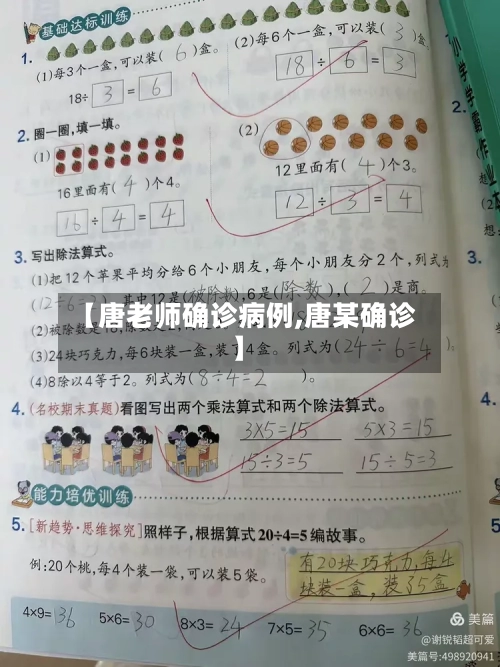 基础达标训练
1.
(1)每3个一盒,可以装( 6 )盒。
(2)每6个一盒,可以装( 3 )盒
18÷ 3 = 6
18 ÷ 6 = 3
2. 圈一圈,填一填。
(1)
(2)
16里面有( 4 )个4。
12里面有( 4 )个3。
16 ÷ 4 = 4
12 ÷ 3 = 4
3. 写出除法算式。
(1)把12个苹果平均分给6个小朋友,每个小朋友分2个,列式为
(12÷6=2),其中12是(被除数),6是(除数),(2)是商。
(2)被除数是
【唐老师确诊病例,唐某确诊
】
(3)24块巧克力,每6块装一盒,装了4盒。列式为(24÷6=4)
(4)8除以4等于2。列式为(8÷4=2)。
4. (名校期末真题)看图写出两个乘法算式和两个除法算式。
3×5=15 5×3=15
15÷3=5 15÷5=3
能力培优训练
5. [新趋势·思维探究]照样子,根据算式20÷4=5编故事。
例:20个桃,每4个装一袋,可以装5袋。
有20块巧克力,每4
块装一盒,装了5盒
4×9=36 5×6=30 8×3=24 7×5=35 6×6=36
2.
3.
4.
5
美篇
@谢锐韬超可爱
美篇号:498920941